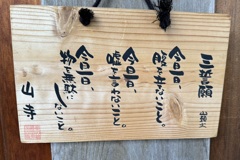 三誓願
今日一日、
腹を立ないこと。
今日一日、
嘘を言わないこと。
今日一日、
物を無駄に
しないこと。
山寺